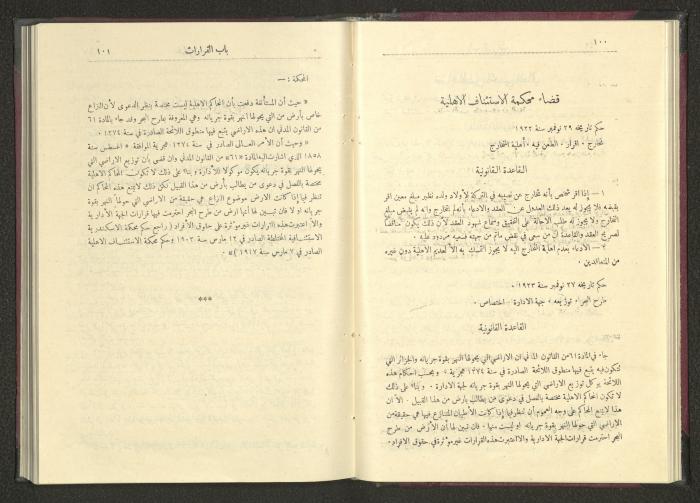 ١٠٠
قضاء محكمة الاستئناف الاهلية
حكم تاريخه ٢٩ نوفمبر سنة ١٩٢٢
تخارج . اقرار . الطعن فيه . أهلية المتخارج
القاعدة القانونية
١ — إذا اقر شخص بأنه تخارج عن نصيبه في التركة لأولاد ولده نظير مبلغ معين اقر
بقبضه فلا يجوز له بعد ذلك العدول عن العقد والادعاء بأنه لم يتخارج وانه لم يقبض مبلغ
التخارج ولا يجوز له طلب الاحالة على التحقيق وسماع شهود العقد لأن ذلك يكون مناقضا
لصريح العقد والقاعدة ان من سعى في نقض ماتم من جهته فسعيه مردود عليه .
٢ — الادعاء بعدم اهلية المتخارج اليه لا يجوز التمسك به الا لعديم الاهلية دون غيره
من المتعاقدين .
حكم تاريخه ٢٧ نوفمبر سنة ١٩٢٣
طرح البحر . توزيعه . جهة الادارة . اختصاص .
القاعدة القانونية
جاء في المادة ٦١ من القانون المدني ان الاراضي التي يحولها النهر بقوة جريانه والجزائر التي
تتكون فيه يتبع فيها منطوق اللائحة الصادرة في سنة ١٢٧٤ هجرية . وبحسب احكام هذه
اللائحة يوكل توزيع الاراضي التي يحولها النهر بقوة جريانه لجهة الادارة . وبناء على ذلك
لا تكون المحاكم الاهلية مختصة بالفصل في دعوى من يطالب بأرض من هذا القبيل . الا ان
هذا لا يمنع المحاكم على وجه العموم أن تنظر فيما إذا كانت الأطيان المتنازع فيها هي حقيقة من
الاراضي التي حولها النهر بقوة جريانه او ليست منها . فان تبين لها أن الأرض من طرح
البحر احترمت قرارات الجهة الادارية والا اعتبرت هذه القرارات غير مؤثرة في حقوق الافراد .
باب القرارات
١٠١
المحكمة : —
« حيث أن المستأنفة دفعت بأن المحاكم الاهلية ليست مختصة بنظر الدعوى لأن النزاع
خاص بأرض من التي يحولها النهر بقوة جريانه وهي المعروفة بطرح البحر وقد جاء بالمادة ٦١
من القانون المدني ان هذه الاراضي يتبع فيها منطوق اللائحة الصادرة في سنة ١٢٧٤ .
« وحيث أن الأمر العالي الصادر في سنة ١٢٧٤ هجرية الموافقة اغسطس سنة
١٨٥٨ الذي اشارت اليه المادة «٦١» من القانون المدني وان قضى بأن توزيع الاراضي التي
يحولها النهر بقوة جريانه يكون موكولا للادارة وبناء على ذلك لا تكون المحاكم الاهلية
مختصة بالفصل في دعوى من يطالب بأرض من هذا القبيل لكن ذلك لا يمنع هذه المحاكم ان
تنظر فيما إذا كانت الارض موضوع النزاع هي حقيقة من الاراضي التي حولها النهر بقوة
جريانه او لا فان تبين لها أنها ارض من طرح البحر احترمت فيها قرارات الجهة الادارية
والا اعتبرت هذه القرارات غير مؤثرة على حقوق الأفراد ( راجع حكم محكمة الاسكندرية
الاستئنافية المختلطة الصادر في ١٢ مارس سنة ١٩٠٣ وحكم محكمة الاستئناف الاهلية
الصادر في ٧ مارس سنة ١٩١٧ )» .
***